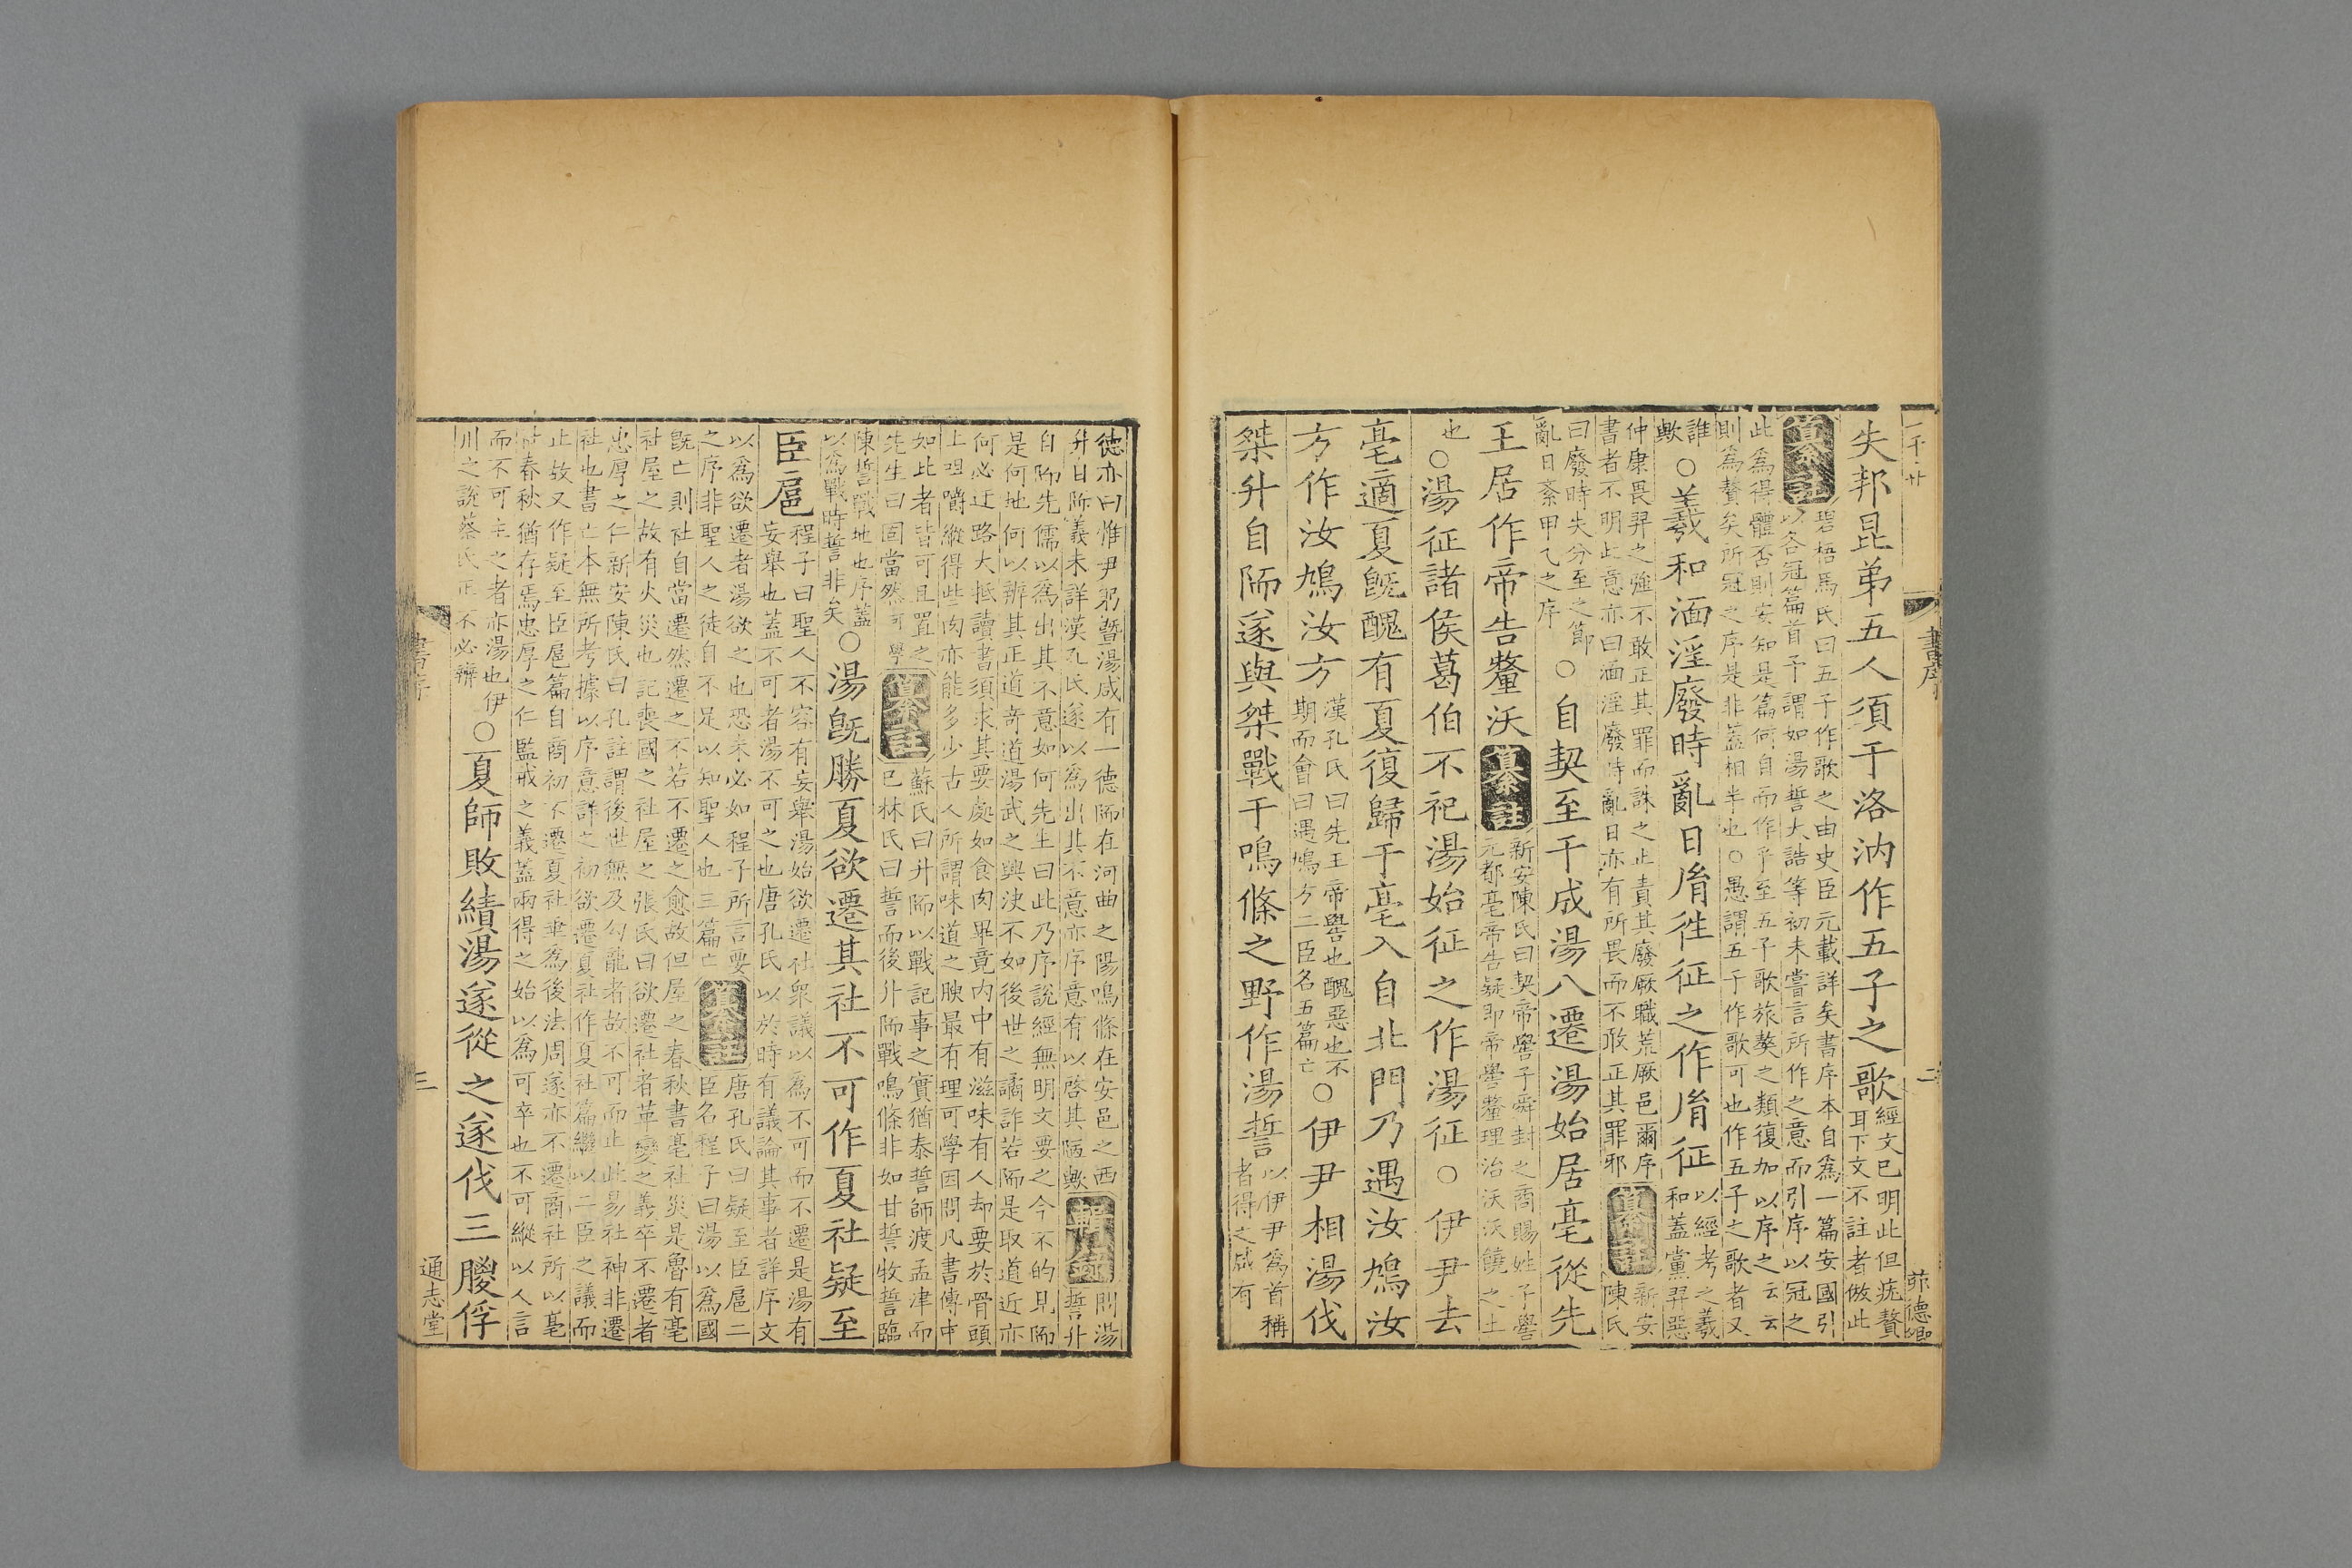 失邦昆弟五人須于洛汭作五子之歌經文已明此但疣贅
耳下文不註者倣此
纂註碧梧馬氏曰五子作歌之由史臣元載詳矣書序本自為一篇安國引
以各冠篇首予謂如湯誓大誥等初未嘗言所作之意而引序以冠之
此為得體否則安知是篇何自而作乎至五子歌旅獒之類復加以序之云云
則為贅矣所冠之序是非蓋相半也○愚謂五子作歌可也作五子之歌者又
誰
歟○羲和湎淫廢時亂日胤徃征之作胤征以經考之羲
和蓋黨羿惡
仲康畏羿之強不敢正其罪而誅之止責其廢厥職荒厥邑爾序
書者不明此意亦曰湎淫廢時亂日亦有所畏而不敢正其罪邪纂註新安
陳氏
曰廢時失分至之節
亂日紊甲乙之序○自契至于成湯八遷湯始居亳從先
王居作帝告釐沃纂註新安陳氏曰契帝嚳子舜封之商賜姓子嚳
元都亳帝告疑即帝嚳釐理治沃沃饒之土
也○湯征諸侯葛伯不祀湯始征之作湯征○伊尹去
亳適夏旣醜有夏復歸于亳入自北門乃遇汝鳩汝
方作汝鳩汝方漢孔氏曰先王帝嚳也醜惡也不
期而會曰遇鳩方二臣名五篇亡○伊尹相湯伐
桀升自陑遂與桀戰于鳴條之野作湯誓以伊尹為首稱
者得之咸有
書序
二
德亦曰惟尹躬曁湯咸有一德陑在河曲之陽鳴條在安邑之西
升自陑義未詳漢孔氏遂以為出其不意亦序意有以啓其陋歟輯錄則湯
誓升
自陑先儒以為出其不意如何先生曰此乃序說經無明文要之今不的見陑
是何地何以辨其正道奇道湯武之興決不如後世之譎詐若陑是取道近亦
何必迂路大抵讀書須求其要處如食肉畢竟肉中有滋味有人却要於骨頭
上咀嚼縱得些肉亦能多少古人所謂味道之腴最有理可學因問凡書傳中
如此者皆可且置之
先生曰固當然可學纂註蘇氏曰升陑以戰記事之實猶泰誓師渡孟津而
已林氏曰誓而後升陑戰鳴條非如甘誓牧誓臨
陳誓戰地也序蓋
以為戰時誓非矣○湯旣勝夏欲遷其社不可作夏社疑至
臣扈程子曰聖人不容有妄舉湯始欲遷社衆議以為不可而不遷是湯有
妄舉也蓋不可者湯不可之也唐孔氏以於時有議論其事者詳序文
以為欲遷者湯欲之也恐未必如程子所言要
之序非聖人之徒自不足以知聖人也三篇亡纂註唐孔氏曰疑至臣扈二
臣名程子曰湯以為國
旣亡則社自當遷然遷之不若不遷之愈故但屋之春秋書亳社災是魯有亳
社屋之故有火災也記喪國之社屋之張氏曰欲遷社者革變之義卒不遷者
忠厚之仁新安陳氏曰孔註謂後世無及勾龍者故不可而止此易社神非遷
社也書亡本無所考據以序意詳之初欲遷夏社作夏社篇繼以二臣之議而
止故又作疑至臣扈篇自商初不遷夏社垂為後法周遂亦不遷商社所以亳
社春秋猶存焉忠厚之仁監戒之義蓋兩得之始以為可卒也不可縱以人言
而不可主之者亦湯也伊
川之說蔡氏正不必辨○夏師敗績湯遂從之遂伐三朡俘
書序
三
通志堂